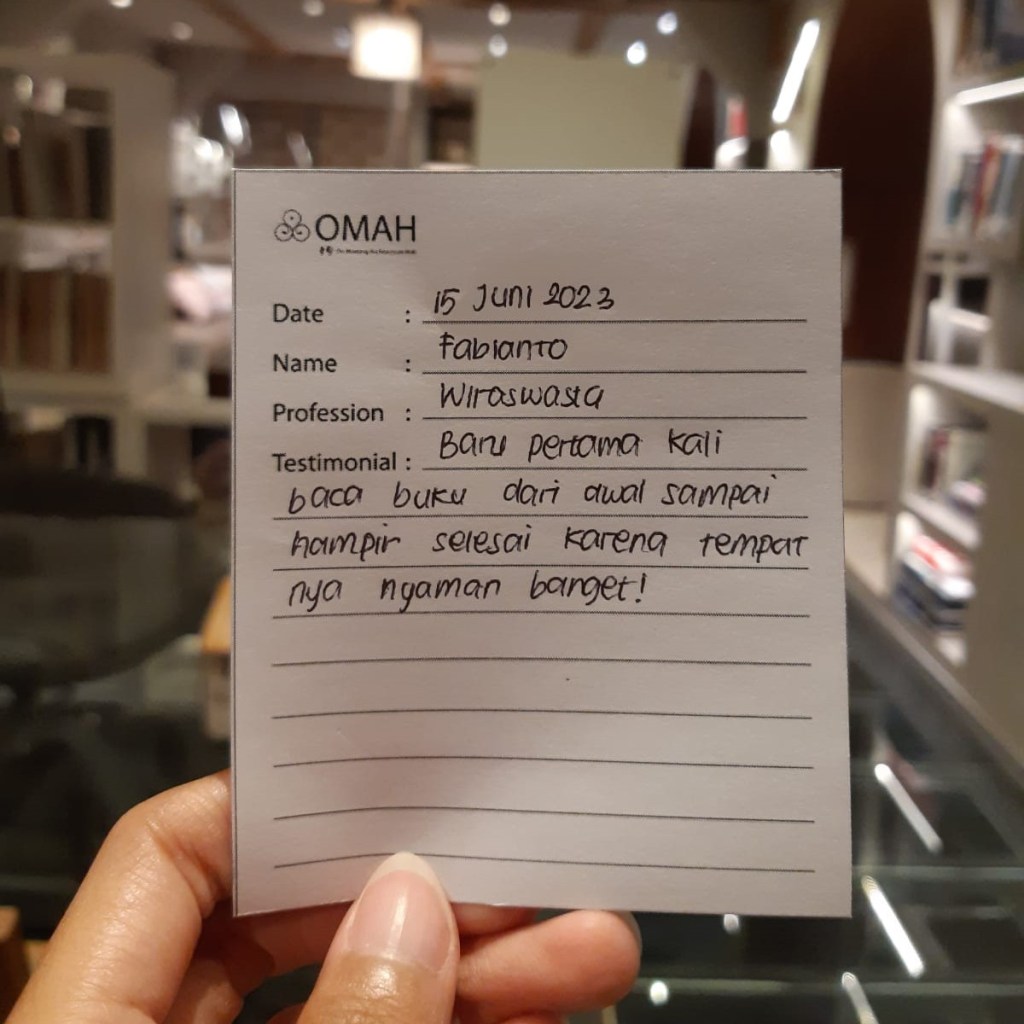 OMAH
Date : 15 Juni 2023
Name : Fabianto
Profession : Wiraswasta
Testimonial : Baru pertama kali
baca buku dari awal sampai
hampir selesai karena tempat
nya nyaman banget!